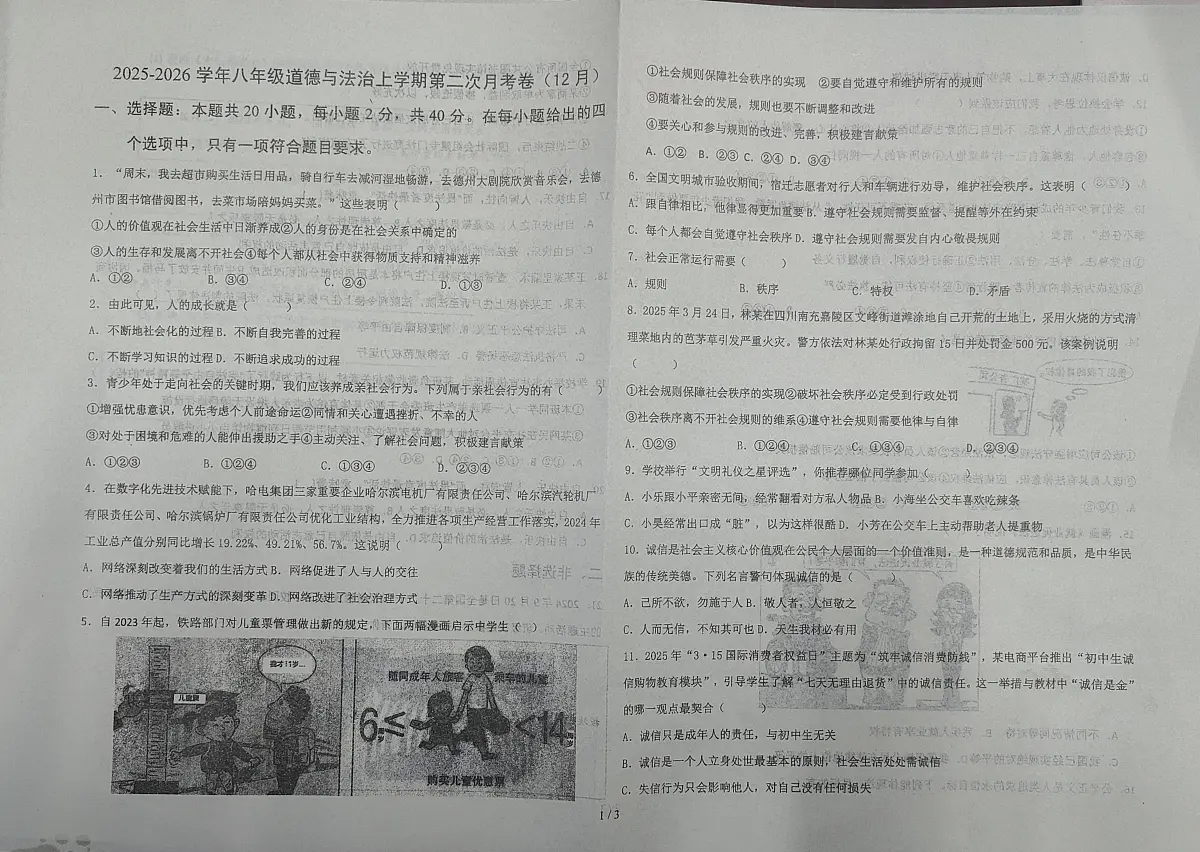 2025-2026 学年八年级道德与法治上学期第二次月考卷（12 月）
一、选择题：本题共 20 小题，每小题 2 分，共 40 分。在每小题给出的四
个选项中，只有一项符合题目要求。
1. “周末，我去超市购买生活日用品，骑自行车去减河湿地畅游，去德州大剧院欣赏音乐会，去德
州市图书馆借阅图书，去菜市场陪妈妈买菜。”这些表明（ ）
①人的价值观在社会生活中日渐养成②人的身份是在社会关系中确定的
③人的生存和发展离不开社会④每个人都从社会中获得物质支持和精神滋养
A. ①② B. ③④ C. ②④ D. ①③
2. 由此可见，人的成长就是（ ）
A. 不断地社会化的过程 B. 不断自我完善的过程
C. 不断学习知识的过程 D. 不断追求成功的过程
3. 青少年处于走向社会的关键时期，我们应该养成亲社会行为。下列属于亲社会行为的有（ ）
①增强忧患意识，优先考虑个人前途命运②同情和关心遭遇挫折、不幸的人
③对处于困境和危难的人能伸出援助之手④主动关注、了解社会问题，积极建言献策
A. ①②③ B. ①②④ C. ①③④ D. ②③④
4. 在数字化先进技术赋能下，哈电集团三家重要企业哈尔滨电机厂有限责任公司、哈尔滨汽轮机厂
有限责任公司、哈尔滨锅炉厂有限责任公司优化工业结构，全力推进各项生产经营工作落实，2024 年
工业总产值分别同比增长 19.22%、49.21%、56.7%。这说明（ ）
A. 网络深刻改变着我们的生活方式 B. 网络促进了人与人的交往
C. 网络推动了生产方式的深刻变革 D. 网络改进了社会治理方式
5. 自 2023 年起，铁路部门对儿童票管理做出新的规定，下面两幅漫画启示中学生（ ）
我才11岁...
儿童票
随同成年人旅客 乘车的儿童
6岁≤ <14周岁
购买儿童优惠票
①社会规则保障社会秩序的实现 ②要自觉遵守和维护所有的规则
③随着社会的发展，规则也要不断调整和改进
④要关心和参与规则的改进、完善，积极建言献策
A. ①② B. ②③ C. ②④ D. ③④
6. 全国文明城市验收期间，宿迁志愿者对行人和车辆进行劝导，维护社会秩序。这表明（ ）
A. 跟自律相比，他律显得更加重要 B. 遵守社会规则需要监督、提醒等外在约束
C. 每个人都会自觉遵守社会秩序 D. 遵守社会规则需要发自内心敬畏规则
7. 社会正常运行需要（ ）
A. 规则 B. 秩序 C. 特权 D. 矛盾
8. 2025 年 3 月 24 日，林某在四川南充嘉陵区文峰街道滩涂地自己开荒的土地上，采用火烧的方式清
理菜地内的芭茅草引发严重火灾。警方依法对林某处行政拘留 15 日并处罚金 500 元。该案例说明
（ ）
①社会规则保障社会秩序的实现②破坏社会秩序必定受到行政处罚
③社会秩序离不开社会规则的维系④遵守社会规则需要他律与自律
A. ①②③ B. ①②④ C. ①③④ D. ②③④
9. 学校举行“文明礼仪之星评选”，你推荐哪位同学参加（ ）
A. 小乐跟小平亲密无间，经常翻看对方私人物品 B. 小海坐公交车喜欢吃辣条
C. 小昊经常出口成“脏”，以为这样很酷 D. 小芳在公交车上主动帮助老人提重物
10. 诚信是社会主义核心价值观在公民个人层面的一个价值准则，是一种道德规范和品质，是中华民
族的传统美德。下列名言警句体现诚信的是（ ）
A. 己所不欲，勿施于人 B. 敬人者，人恒敬之
C. 人而无信，不知其可也 D. 天生我材必有用
11. 2025 年“3·15 国际消费者权益日”主题为“筑牢诚信消费防线”，某电商平台推出“初中生诚
信购物教育模块”，引导学生了解“七天无理由退货”中的诚信责任。这一举措与教材中“诚信是金”
的哪一观点最契合（ ）
A. 诚信只是成年人的责任，与初中生无关
B. 诚信是一个人立身处世最基本的原则，社会生活处处需诚信
C. 失信行为只会影响他人，对自己没有任何损失
1 / 3